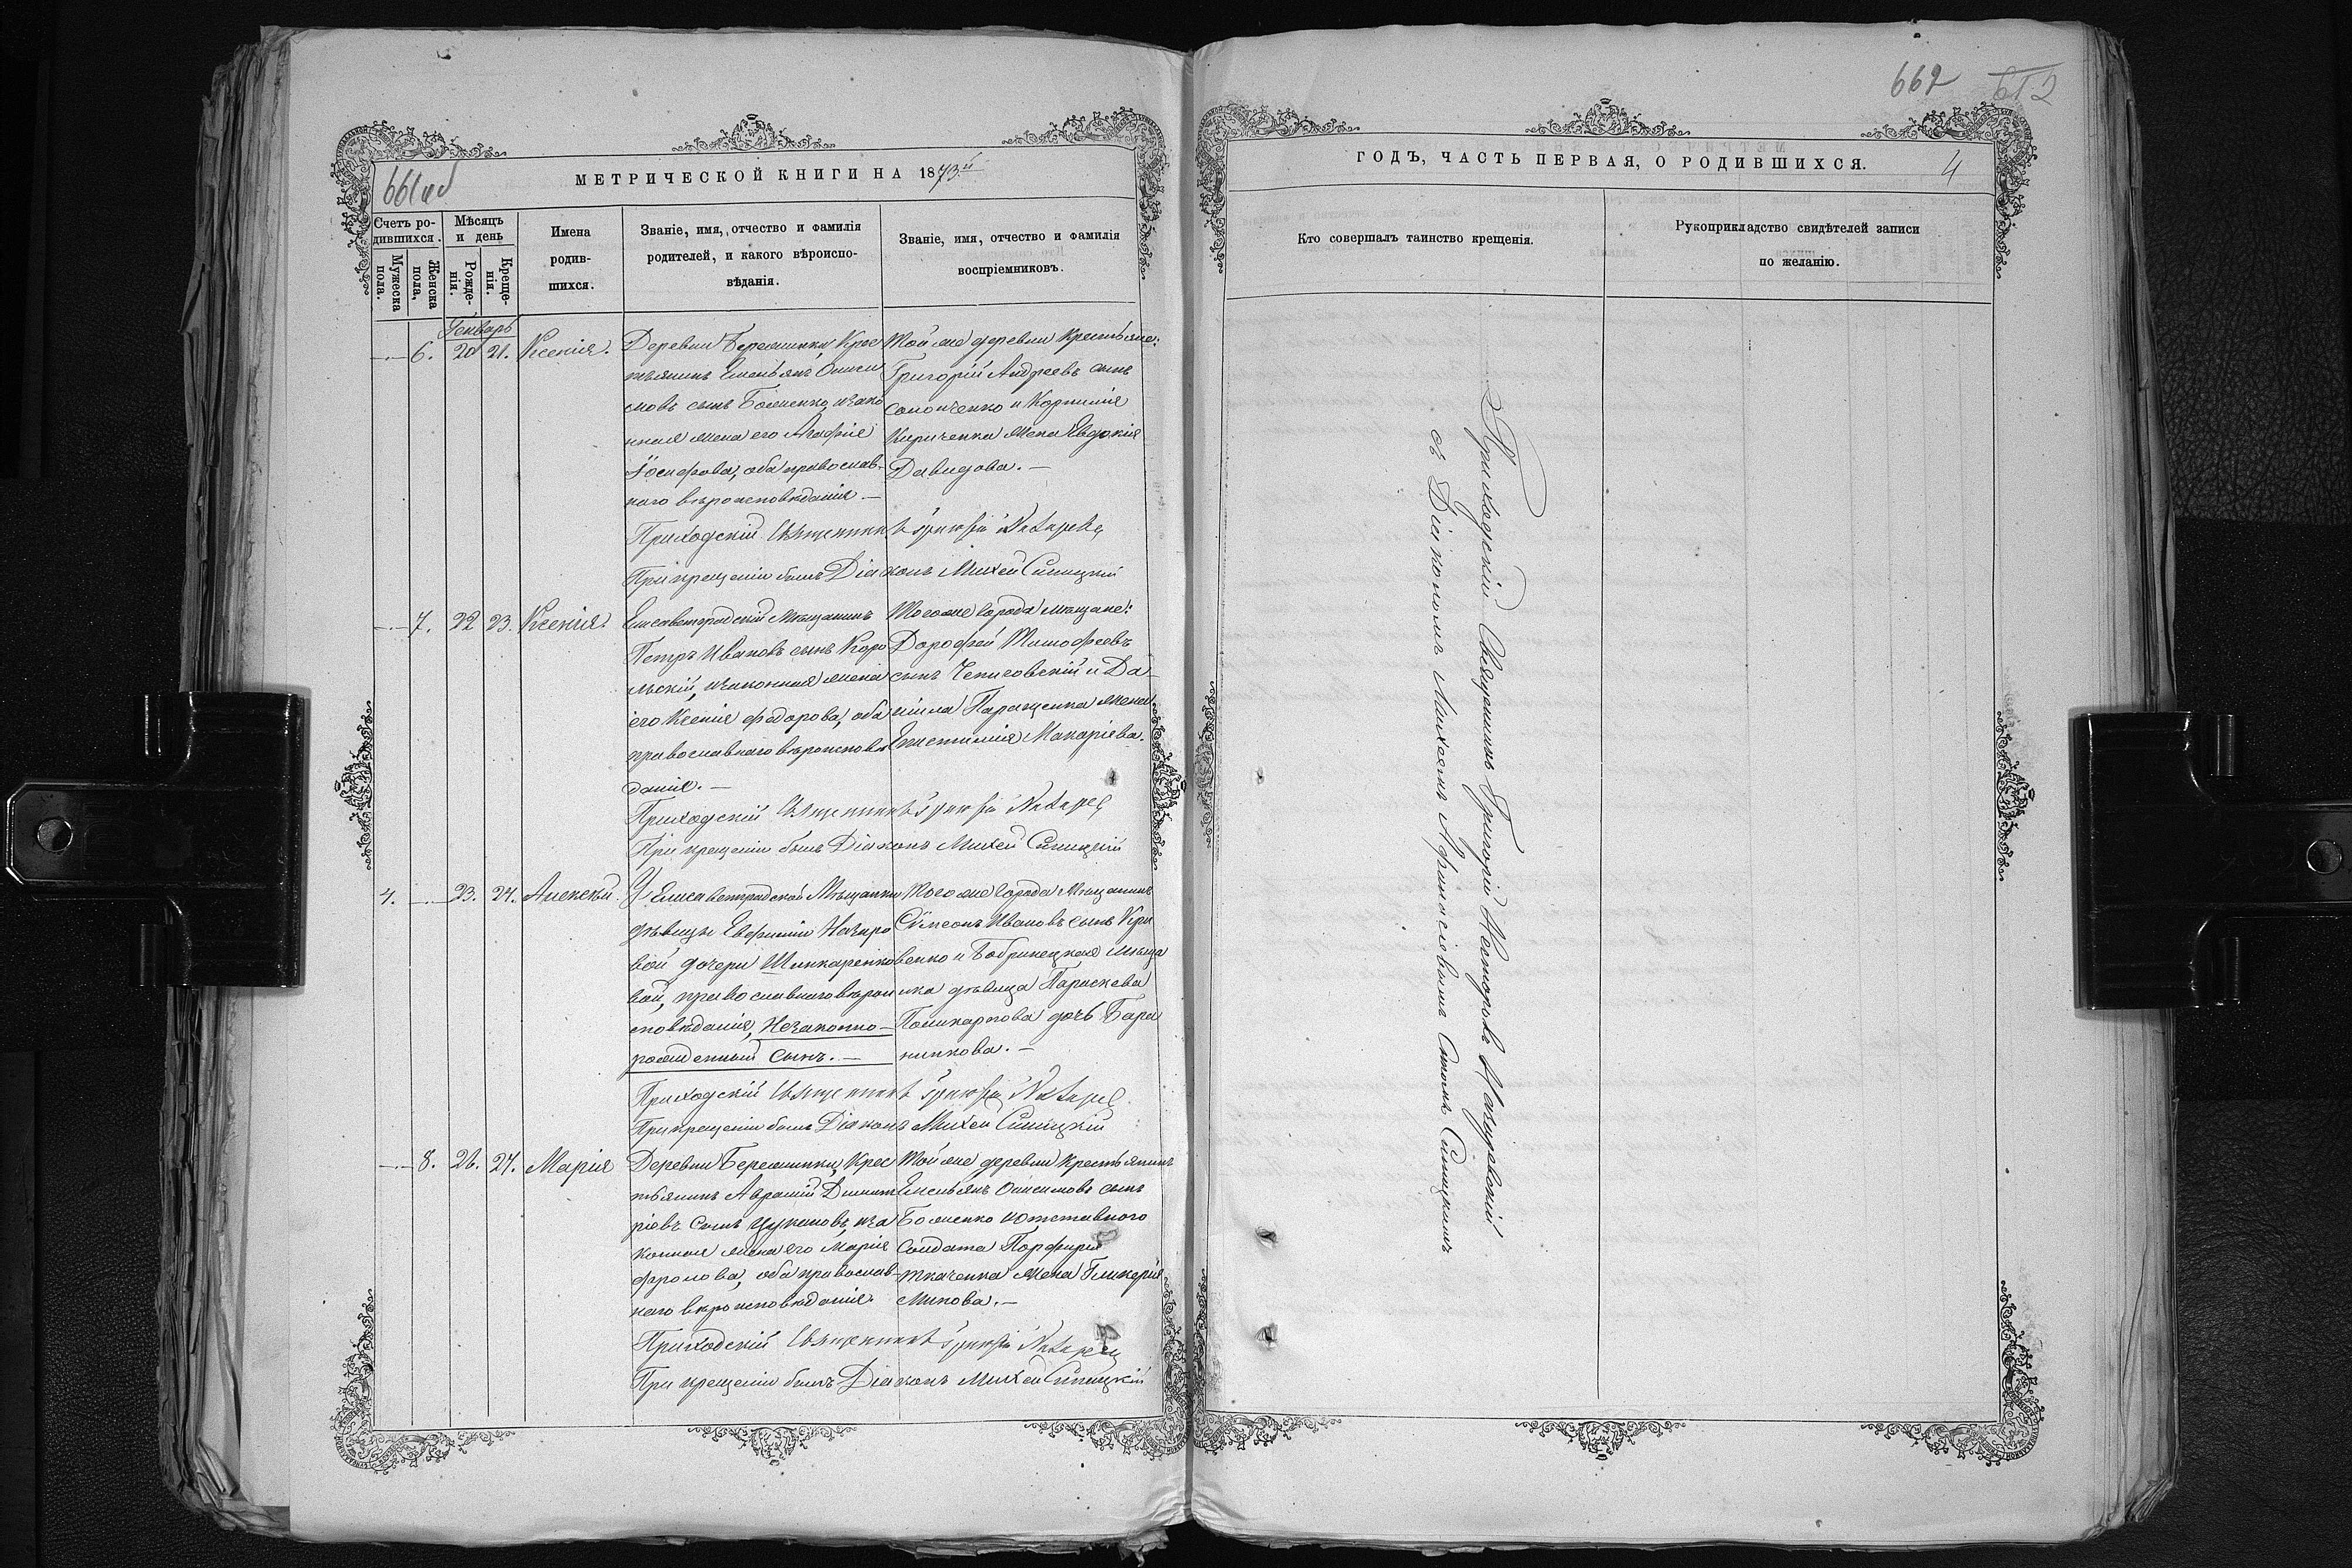 661 об
МЕТРИЧЕСКОЙ КНИГИ НА 1873й
Счетъ ро-
дившихся.
Мужеска
пола.
Женска
пола,
Мѣсяцъ
и день
Рожде-
нія.
Креще-
нія.
Имена
родив-
шихся.
Званіе, имя, отчество и фамилія
родителей, и какого вѣроиспо-
вѣданія.
Званіе, имя, отчество и фамилія
воспріемниковъ.
Генварь
6. 20 21. Ксенія.
Деревни Бережинки, Крес
тьянинъ Емельянъ Ониси
мовъ сынъ Боженко, изако
нная жена его Агафія
Іосифова, оба православ-
наго вѣроисповѣданія. —
Той же деревни крестьяне:
Григорій Андреевъ сынъ
и Корнилія
Кириченка жена Евдокія
Давидова. —
Приходскій Священникъ Григорій
При крещеніи былъ Діаконъ Михей Синицкій
7. 22 23. Ксенія.
Елисаветградскій Мѣщанинъ
Петръ Ивановъ сынъ Коро
льскій, изаконная жена
его Ксенія Федорова, оба
православнаго вѣроисповѣ
данія. —
Того же города мѣщане:
Дорофей Тимофеевъ
сынъ Чеписовскій и Да-
ніила Паращенка жена
Епистимія Макаріева.
Приходскій Священникъ Григорій
При крещеніи былъ Діаконъ Михей Синицкій
4. 23. 24. Алексѣй.
У Елисаветградской Мѣщанки
дѣвицы Евфиміи Назаро
вой дочери Шинкаренко
вой, православнаго вѣрои
сповѣданія, Незаконно-
рожденный сынъ. —
Того же города Мѣщанинъ
Сѵмеонъ Ивановъ сынъ Кри
венко и Бобринецкая мѣща
нка дѣвица Параскева
Поликарпова дочь Бара
нникова. —
Приходскій Священникъ Григорій
При крещеніи былъ Діаконъ Михей Синицкій
8. 26. 27. Марія
Деревни Бережинки, Крес
тьянинъ Авраамій Димит
ріевъ Сынъ Цукановъ, иза
конная жена его Марія
Фролова, оба православ-
наго вѣроисповѣданія.
Той же деревни крестьянинъ
Емельянъ Онисимовъ сынъ
Боженко иотставного
Солдата Порфирія
Ткаченка жена Гликерія
Минова. —
Приходскій Священникъ Григорій
При крещеніи былъ Діаконъ Михей Синицкій
662 612
ГОДЪ, ЧАСТЬ ПЕРВАЯ, О РОДИВШИХСЯ.
4
Кто совершалъ таинство крещенія.
Рукоприкладство свидѣтелей записи
по желанію.
Приходскій Священникъ Григорій Несторовъ
съ Діакономъ Михеемъ Афанасіевымъ Сыномъ Синицкимъ